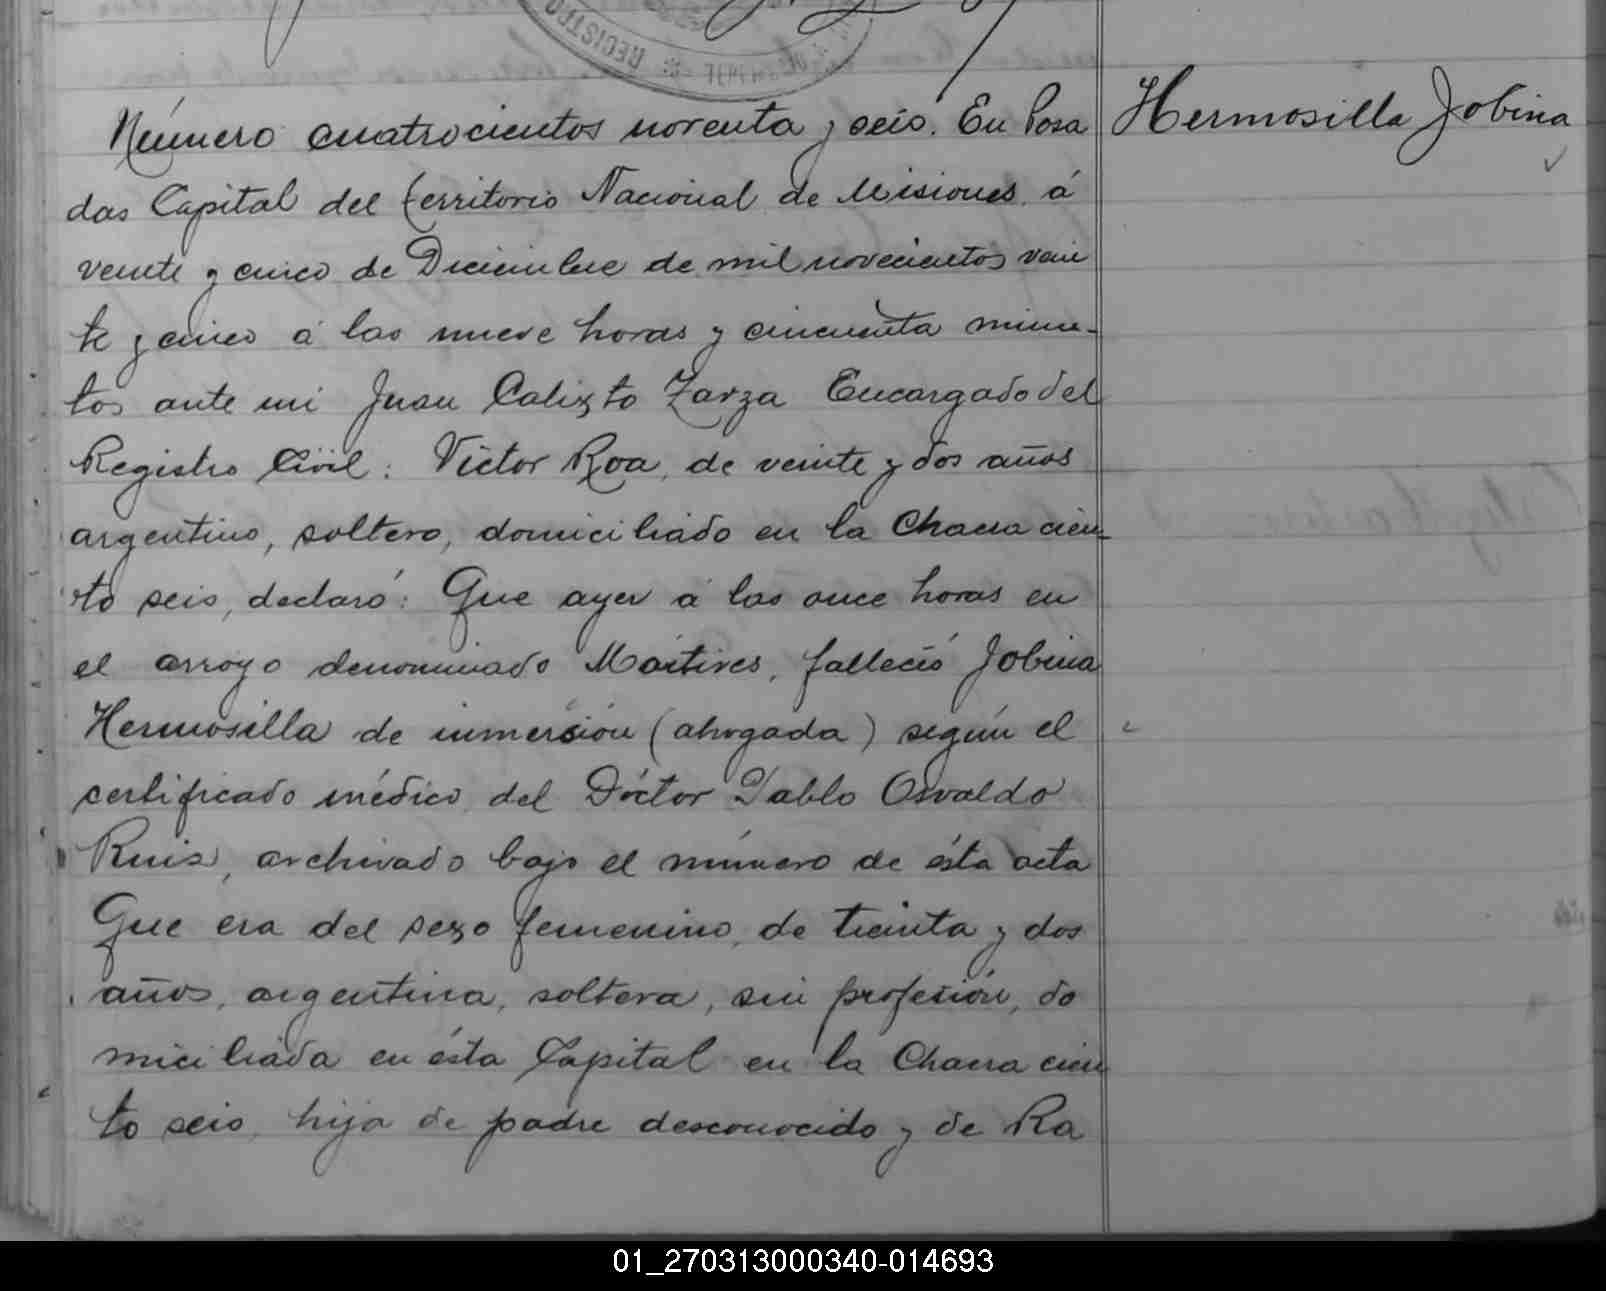 REGISTRO
Hermosilla Jobina
Número cuatrocientos noventa y seis. En Posa
das Capital del territorio Nacional de Misiones á
veinte y cinco de Diciembre de mil novecientos vein
te y cinco á las nueve horas y cincuenta minu-
tos ante mi Juan Calixto Zarza Encargado del
Registro Civil: Víctor Roa, de veinte y dos años
argentino, soltero, domiciliado en la Chacra cien
to seis, declaró: Que ayer á las once horas en
el arroyo denominado Mártires, falleció Jobina
Hermosilla de inmersión (ahogada) según el
certificado médico del Dóctor Pablo Osvaldo
Ruiz, archivado bajo el número de ésta acta
Que era del sexo femenino, de treinta y dos
años, argentina, soltera, sin profesión, do
miciliada en ésta Capital en la Chacra cien
to seis, hija de padre desconocido y de Ra
01_270313000340-014693